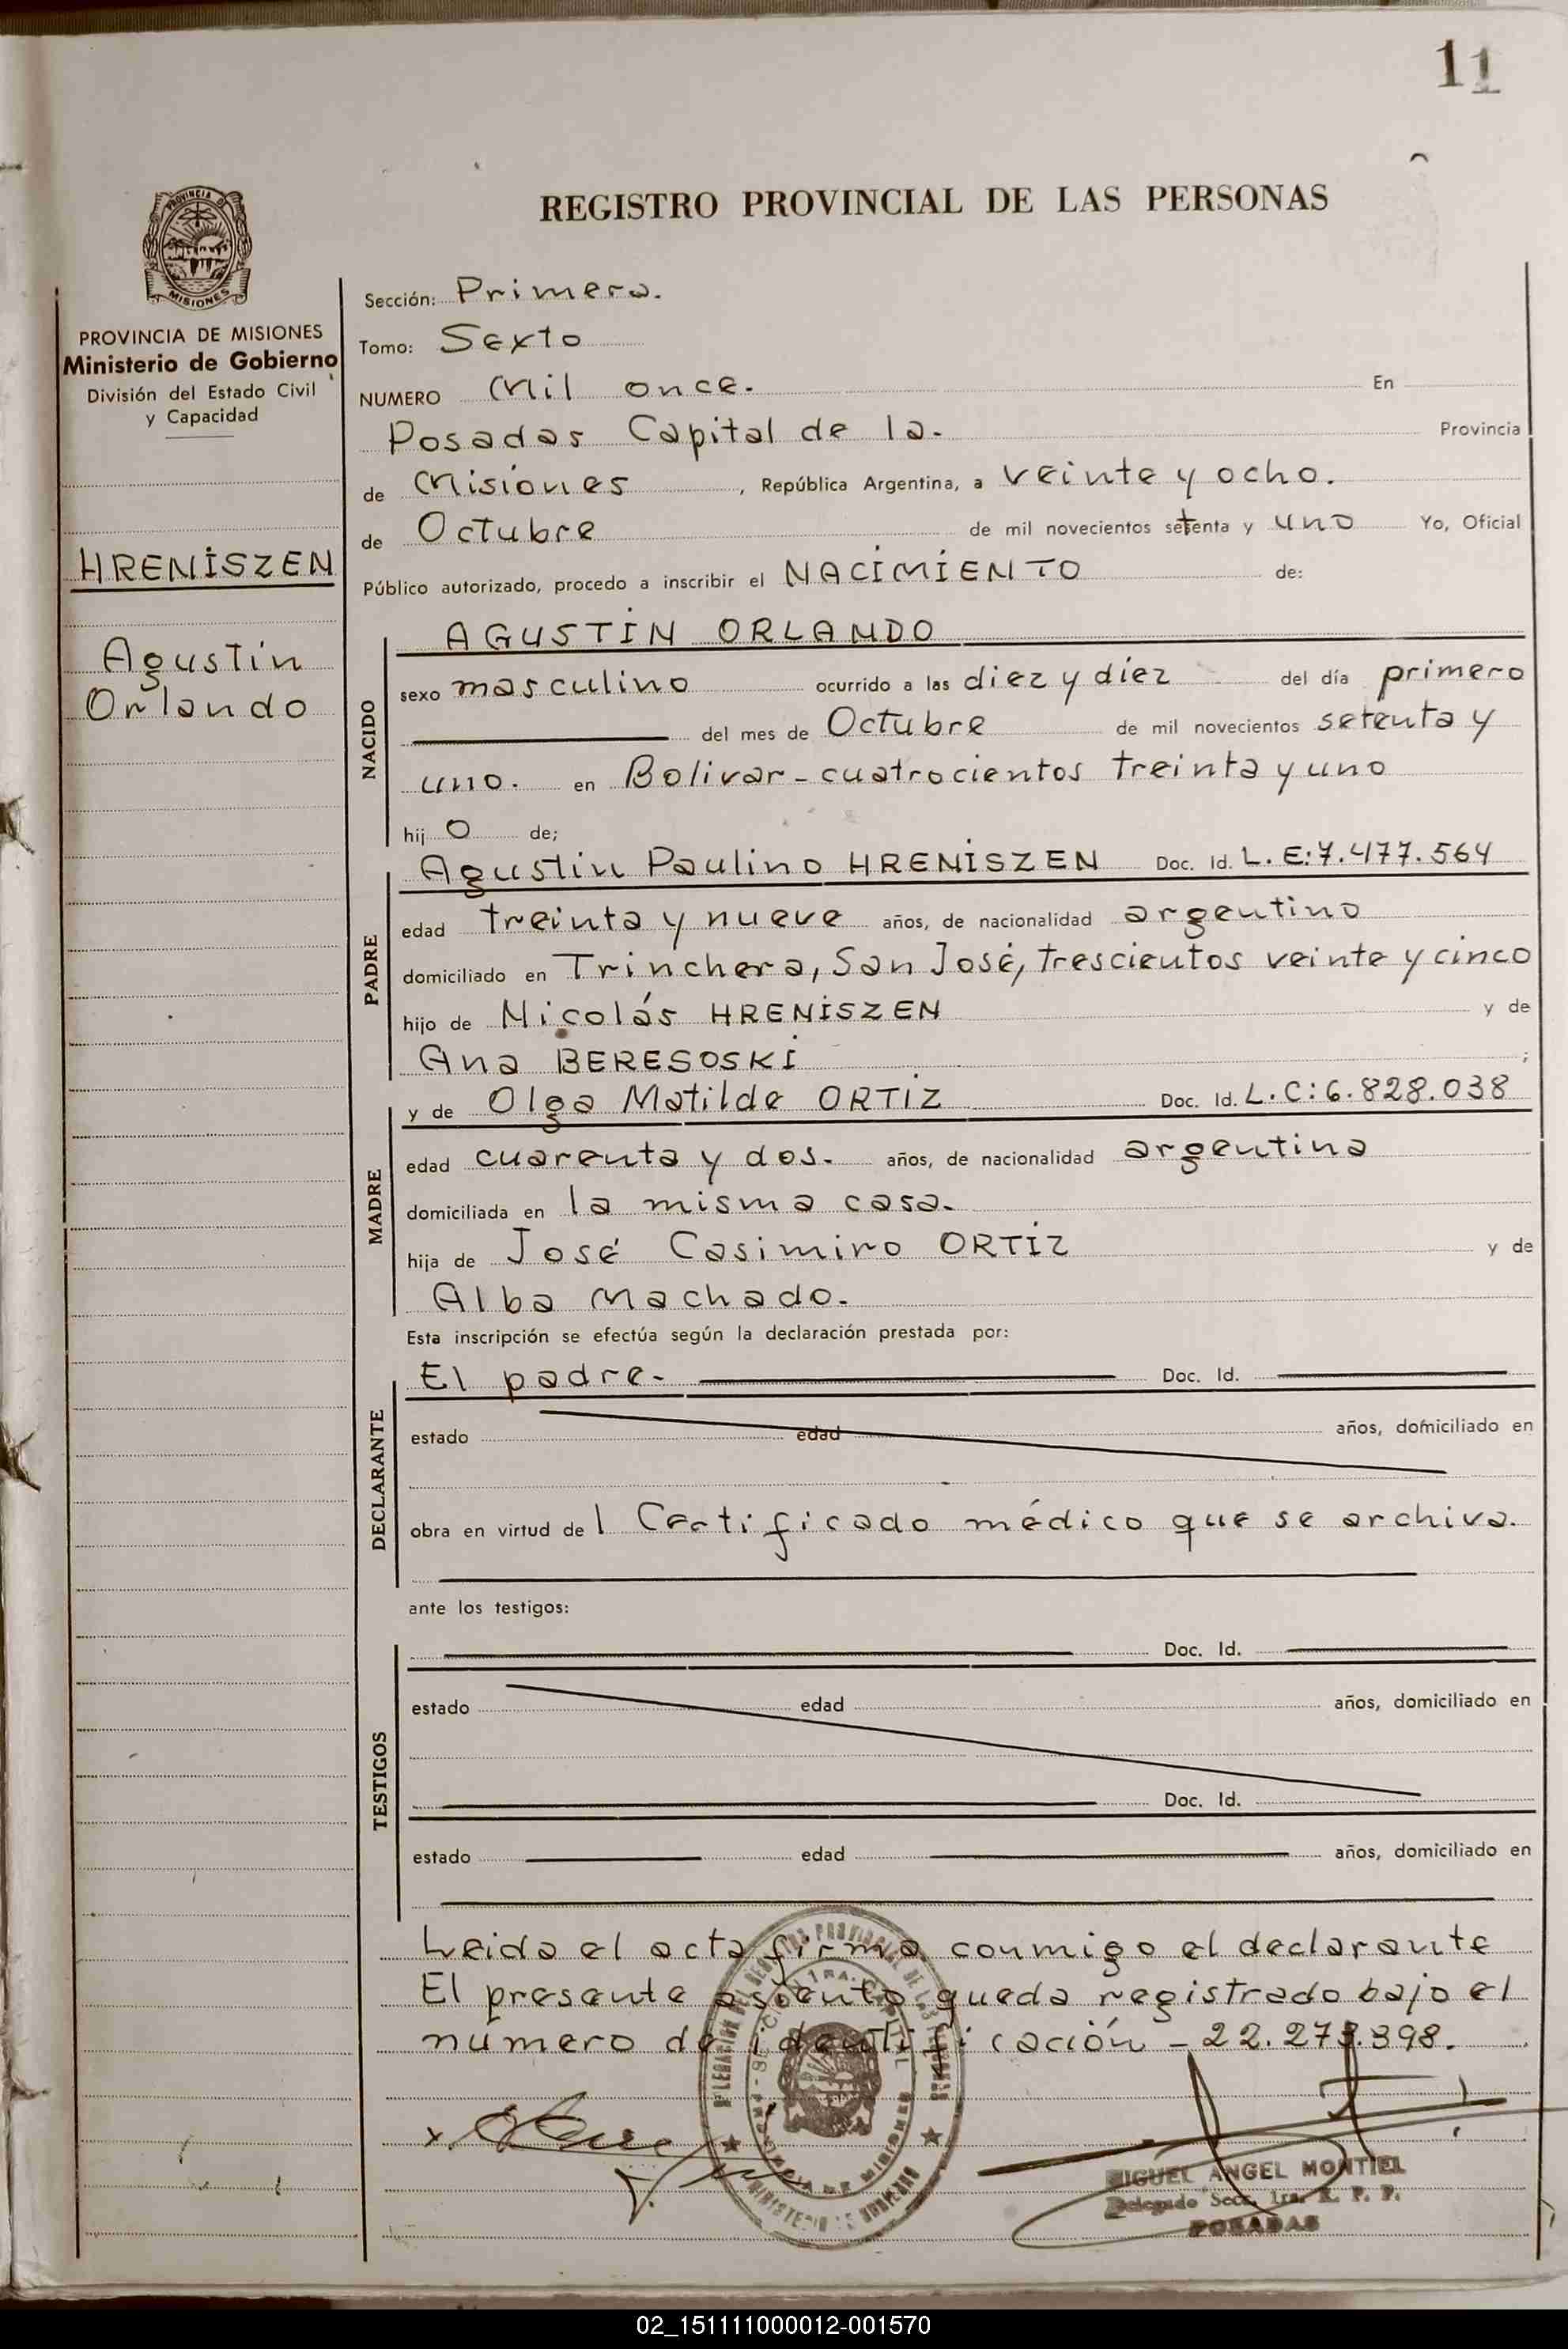 11
REGISTRO PROVINCIAL DE LAS PERSONAS
PROVINCIA DE
MISIONES
PROVINCIA DE MISIONES
Ministerio de Gobierno
División del Estado Civil
y Capacidad
HRENISZEN
Agustin
Orlando
Sección: Primera.
Tomo: Sexto
NUMERO Mil once. En
Posadas Capital de la. Provincia
de Misiones, República Argentina, a veinte y ocho.
de Octubre de mil novecientos setenta y uno Yo, Oficial
Público autorizado, procedo a inscribir el NACIMIENTO de:
NACIDO
AGUSTIN ORLANDO
sexo masculino ocurrido a las diez y diez del día primero
del mes de Octubre de mil novecientos setenta y
uno. en Bolivar - cuatrocientos treinta y uno
hij o de;
PADRE
Agustin Paulino HRENISZEN Doc. Id. L. E: 7.477.564
edad treinta y nueve años, de nacionalidad argentino
domiciliado en Trinchera, San José, trescientos veinte y cinco
hijo de Nicolás HRENISZEN y de
Ana BERESOSKI ;
MADRE
y de Olga Matilde ORTIZ Doc. Id. L.C: 6.828.038
edad cuarenta y dos. años, de nacionalidad argentina
domiciliada en la misma casa.
hija de José Casimiro ORTIZ y de
Alba Machado.
Esta inscripción se efectúa según la declaración prestada por:
DECLARANTE
El padre. Doc. Id.
estado edad años, domiciliado en
obra en virtud de l Certificado médico que se archiva.
ante los testigos:
TESTIGOS
Doc. Id.
estado edad años, domiciliado en
Doc. Id.
estado edad años, domiciliado en
Leida el acta firma conmigo el declarante
El presente asiento queda registrado bajo el
número de identificación - 22.273.398.
MIGUEL ANGEL MONTIEL
Delegado Secc. 1ra. R. P. P.
POSADAS
02_151111000012-001570